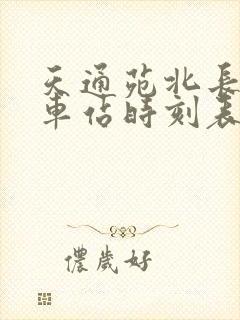 天通苑北長
車站時刻表
儂歲好